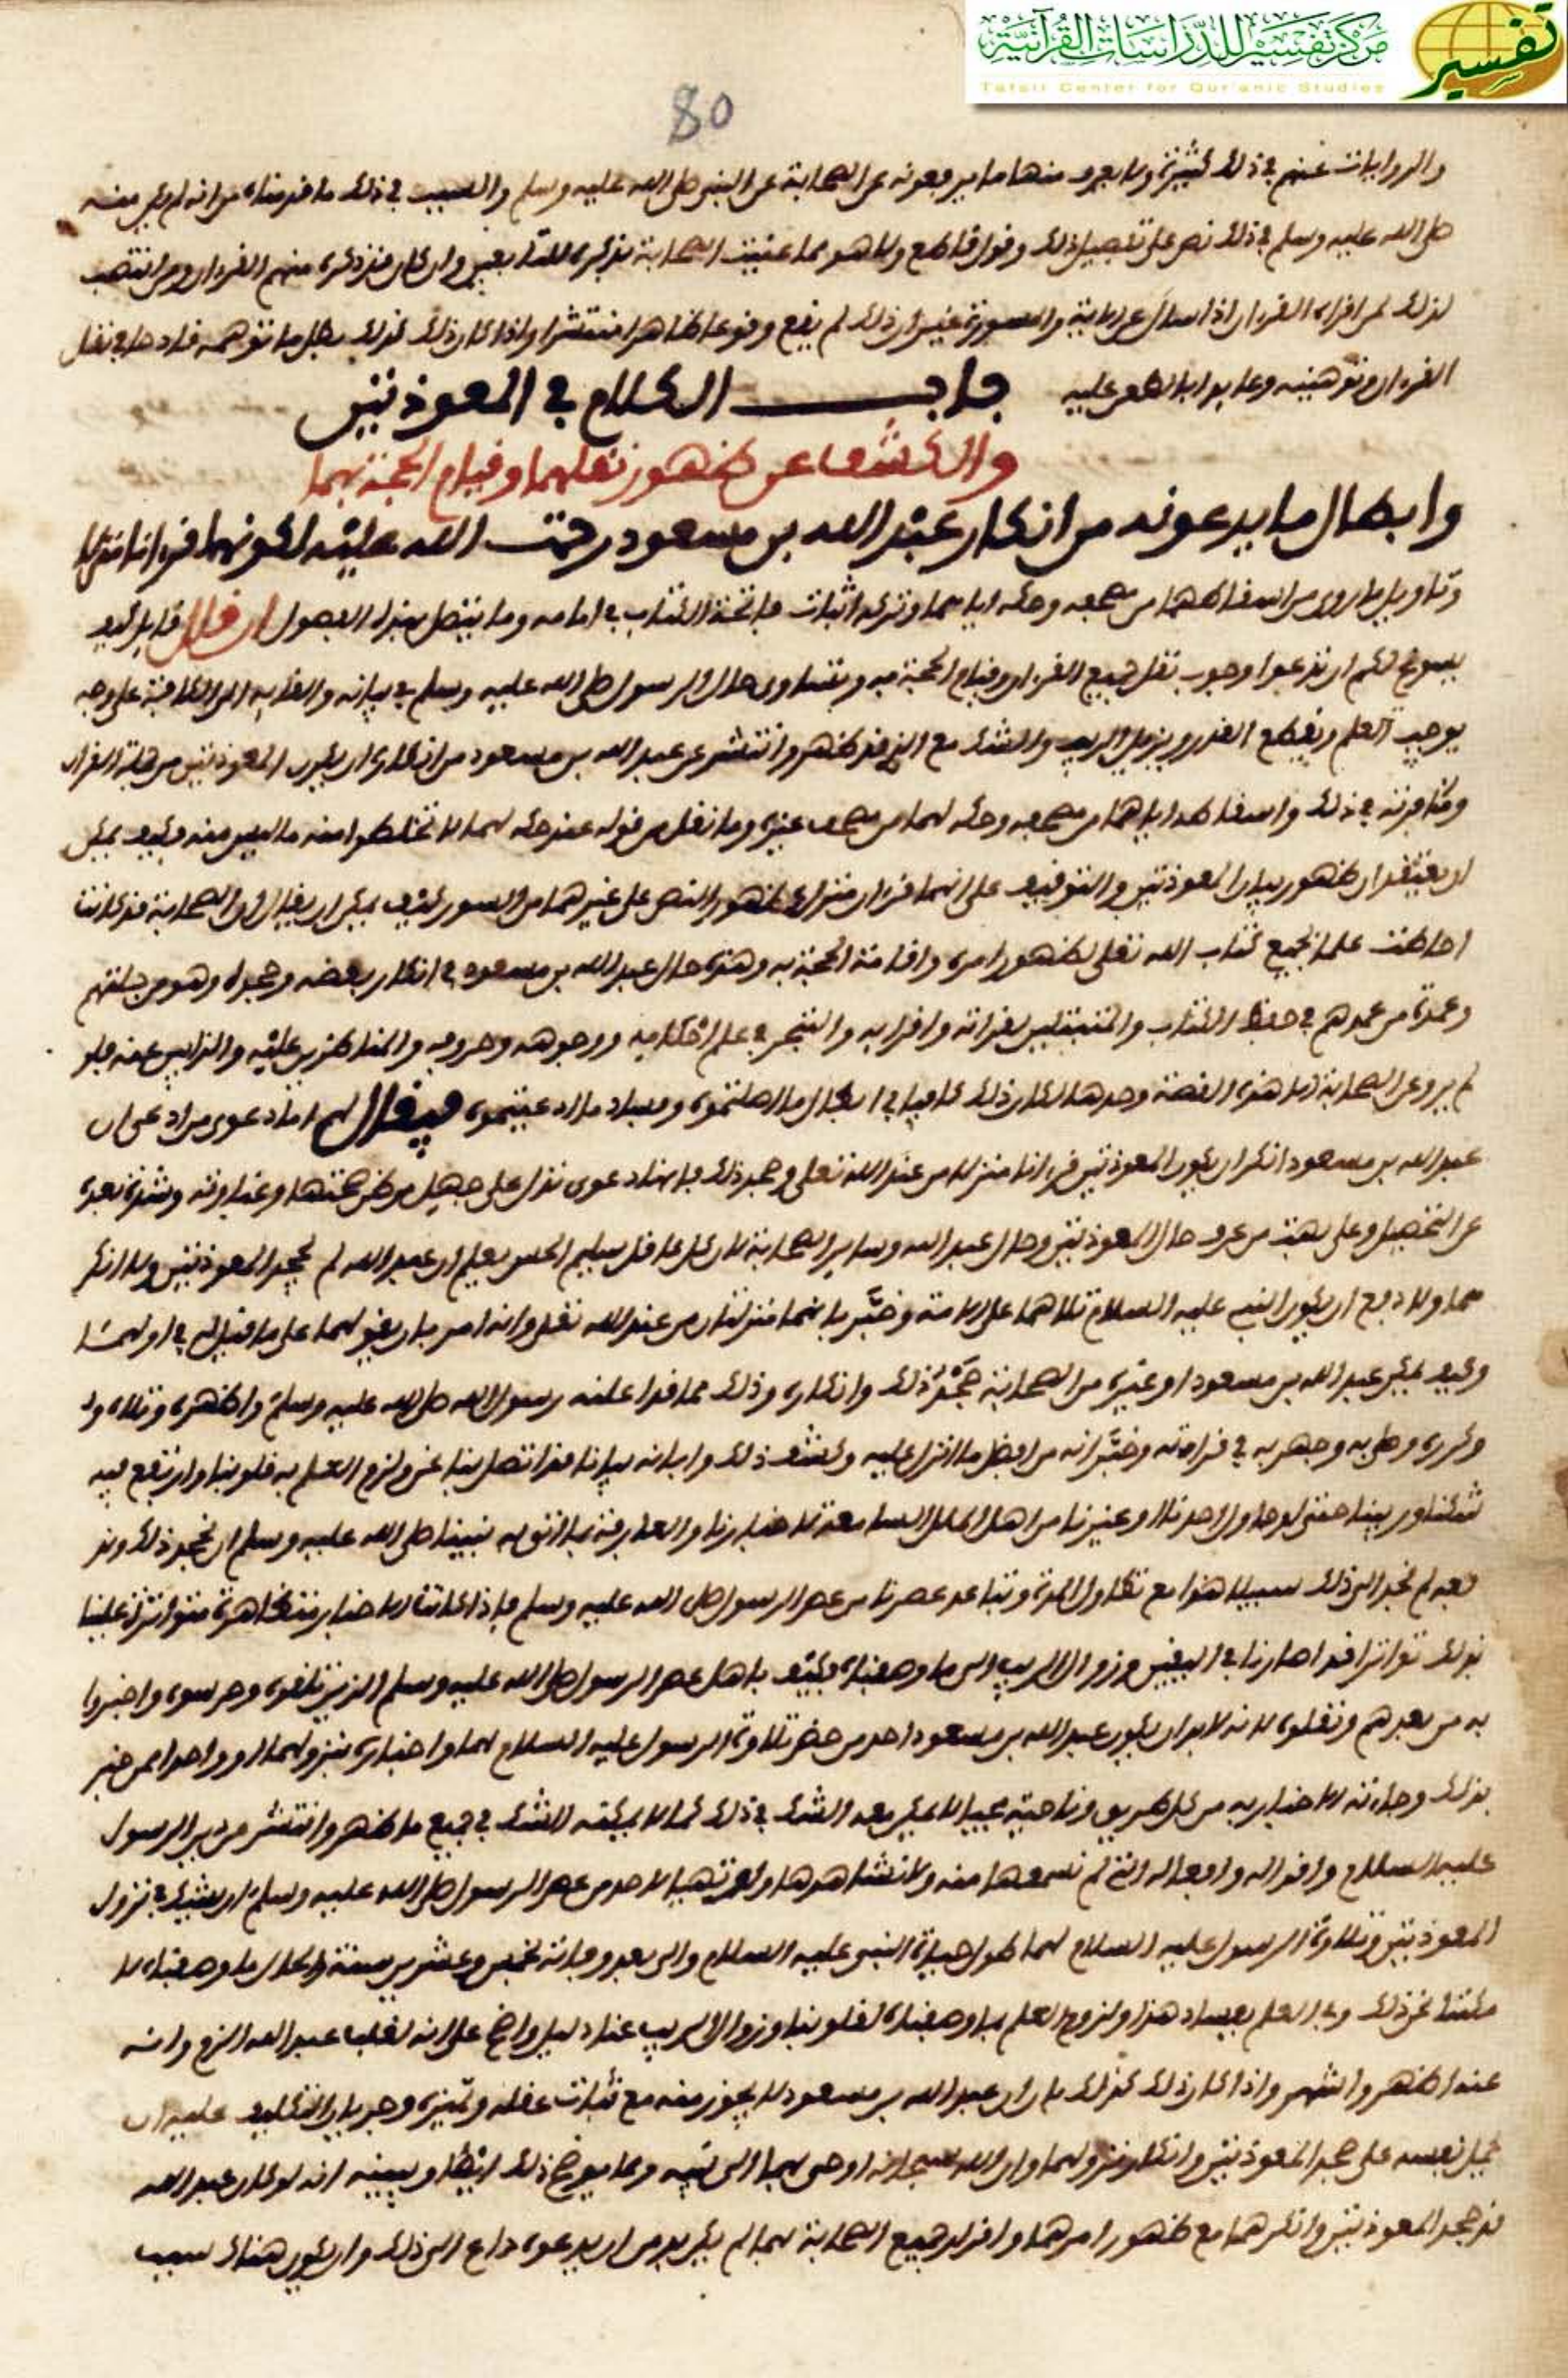 مركز تفسير للدراسات القرآنية
تفسير
Tafsir Center for Qur'anic Studies
80
والروايات عنهم في ذلك كثيرة ولا يعرف منها ما يرفعونه عن الصحابة عن النبي صلى الله عليه وسلم والسبب في ذلك ما قدمناه من أنه لم يكن منه
صلى الله عليه وسلم في ذلك نص على تفصيل ذلك وقول قاطع ولا هو مما عنيت الصحابة بذكره للتابعين وإن كان قد ذكره منهم القراء ومن انتصب
لذلك لمن اقراه القرءان إذا سأل عن الآية والسورة غير أن ذلك لم يقع وقوعا ظاهرا منتشرا وإذا كان ذلك كذلك بطل ما توهمه قادحا في نقل
القرءان وتوهينه وعابوا بالطعن عليه
باب الكلام في المعوذتين
والكشف عن ظهور نقلهما وقيام الحجة بهما
وابطال ما يدعونه من انكار عبد الله بن مسعود رحمت الله عليه لكونهما قرءانا منزلا
وتاويل ما روي من اسقاطهما من مصحفه وحكه اياهما وتركه اثبات فاتحة الكتاب في امامه وما يتصل بهذه الفصول ان قال قايل كيف
يسوغ لكم ان تدعوا وجوب نقل جميع القرءان وقيام الحجة به وتساوي حال الرسول صلى الله عليه وسلم في بيانه والقايه الى الكافة على وجه
يوجب العلم ويقطع العذر ويزيل الريب والشك مع الذي قد ظهر وانتشر عن عبد الله بن مسعود من انكاره ان يكون المعوذتين من جملة القرءان
ومناظرته في ذلك واسقاطه اياهما من مصحفه وحكه لهما من مصحف غيره وما نقل من قوله عند حكه لهما لا تخلطوا منه ما ليس منه وكيف يمكن
ان يعتقد ان ظهور بيان المعوذتين والتوقيف على انهما قرءان منزل كظهور النص على غيرهما من السور وكيف يمكن ان يقال ان الصحابة قد كانت
احاطت علما بجميع كتاب الله تعلى لظهور امره واقامة الحجة به وهذه حال عبد الله بن مسعود في انكار بعضه وجحده وهو من جلتهم
وعمدة من عمدهم في حفظ الكتاب والمتبتلين لقراته واقرايه والتبحر في علم احكامه ووجوهه وحروفه والمناظرين عليه والذابين عنه فلو
لم يرو عن الصحابة الا هذه القصة وحدها لكان ذلك كافيا في ابطال ما اصلتموه وفساد ما ادعيتموه فيقال لهم اما دعوى من ادعى ان
عبد الله بن مسعود انكر ان يكون المعوذتين قرءانا منزلا من عند الله تعلى وجحد ذلك فانها دعوى تدل على جهل من ظن صحتها وغباوته وشدة بعده
عن التحصيل وعلى بهت من عرف حال المعوذتين وحال عبد الله وساير الصحابة لان كل عاقل سليم الحس يعلم ان عبد الله لم يجحد المعوذتين ولا انكر
هما ولا دفع ان يكون النبي عليه السلام تلاهما على الامة وخبّر بانهما منزلتان من عند الله تعلى وانه امر بان يقولهما على ما قيل له في اولهما
وكيف يمكن عبد الله بن مسعود او غيره من الصحابة جحد ذلك وانكاره وذلك مما قد اعلنه رسول الله صلى الله عليه وسلم واظهره وتلاه
وكرره وصلى به وجهر به في قراءته وخبّر انه من افضل ما انزل عليه وكشف ذلك وابانه بيانا قد اتصل بنا نحن ولزم العلم به قلوبنا وارتفع فيه
شكنا وريبنا حتى لو حاول احدنا او غيرنا من اهل الملل السامعة لاخبارنا والعارفة بما اتى به نبينا صلى الله عليه وسلم ان نجحد ذلك وند
فعه لم نجد الى ذلك سبيلا هذا مع تطاول المدة وتباعد عصرنا من عصر الرسول صلى الله عليه وسلم فاذا كانت الاخبار متظاهرة متواترة علينا
بذلك تواترا قد اصارنا في اليقين وزوال الريب الى ما وصفناه فكيف باهل عصر الرسول صلى الله عليه وسلم الذين تلقوه وحرسوه واخبروا
به من بعدهم ونقلوه لانه لابد ان يكون عبد الله بن مسعود احد من حضر تلاوة الرسول عليه السلام لهما واخباره بنزولهما او واحدا ممن خبر
بذلك وجاءته الاخبار به من كل طريق وناحية مجيا لا يمكن معه الشك في ذلك كما لا يمكنه الشك في جميع ما ظهر وانتشر من دين الرسول
عليه السلام واقواله وافعاله التي لم نسمعها منه ولا نشاهدها ولو تهيا لاحد من عصر الرسول صلى الله عليه وسلم ان يشك في نزول
المعوذتين وتلاوة الرسول عليه السلام لهما طول حياة النبي عليه السلام والى بعد وفاته بخمس وعشرين سنة وكان ما وصفناه لا
مكننا نحن ذلك وفي العلم بفساد هذا ولزوم العلم بما وصفناه لقلوبنا وزوال الريب عنا دليل واضح على انه لقلب عبد الله الزم وانه
عنده اظهر واشهر واذا كان ذلك كذلك بان ان عبد الله بن مسعود لا يجوز منه مع ثبات عقله وتمييزه وجريان التكليف عليه ان
يحمل نفسه على جحد المعوذتين وانكار نزولهما وان الله سبحانه اوحى بهما الى نبيه ومما يوضح ذلك ايضا ويبينه انه لو كان عبد الله
قد جحد المعوذتين وانكرهما مع ظهور امرهما واقرار جميع الصحابة بهما لم يكن بد من ان يدعوه داع الى ذلك وان يكون هناك سبب